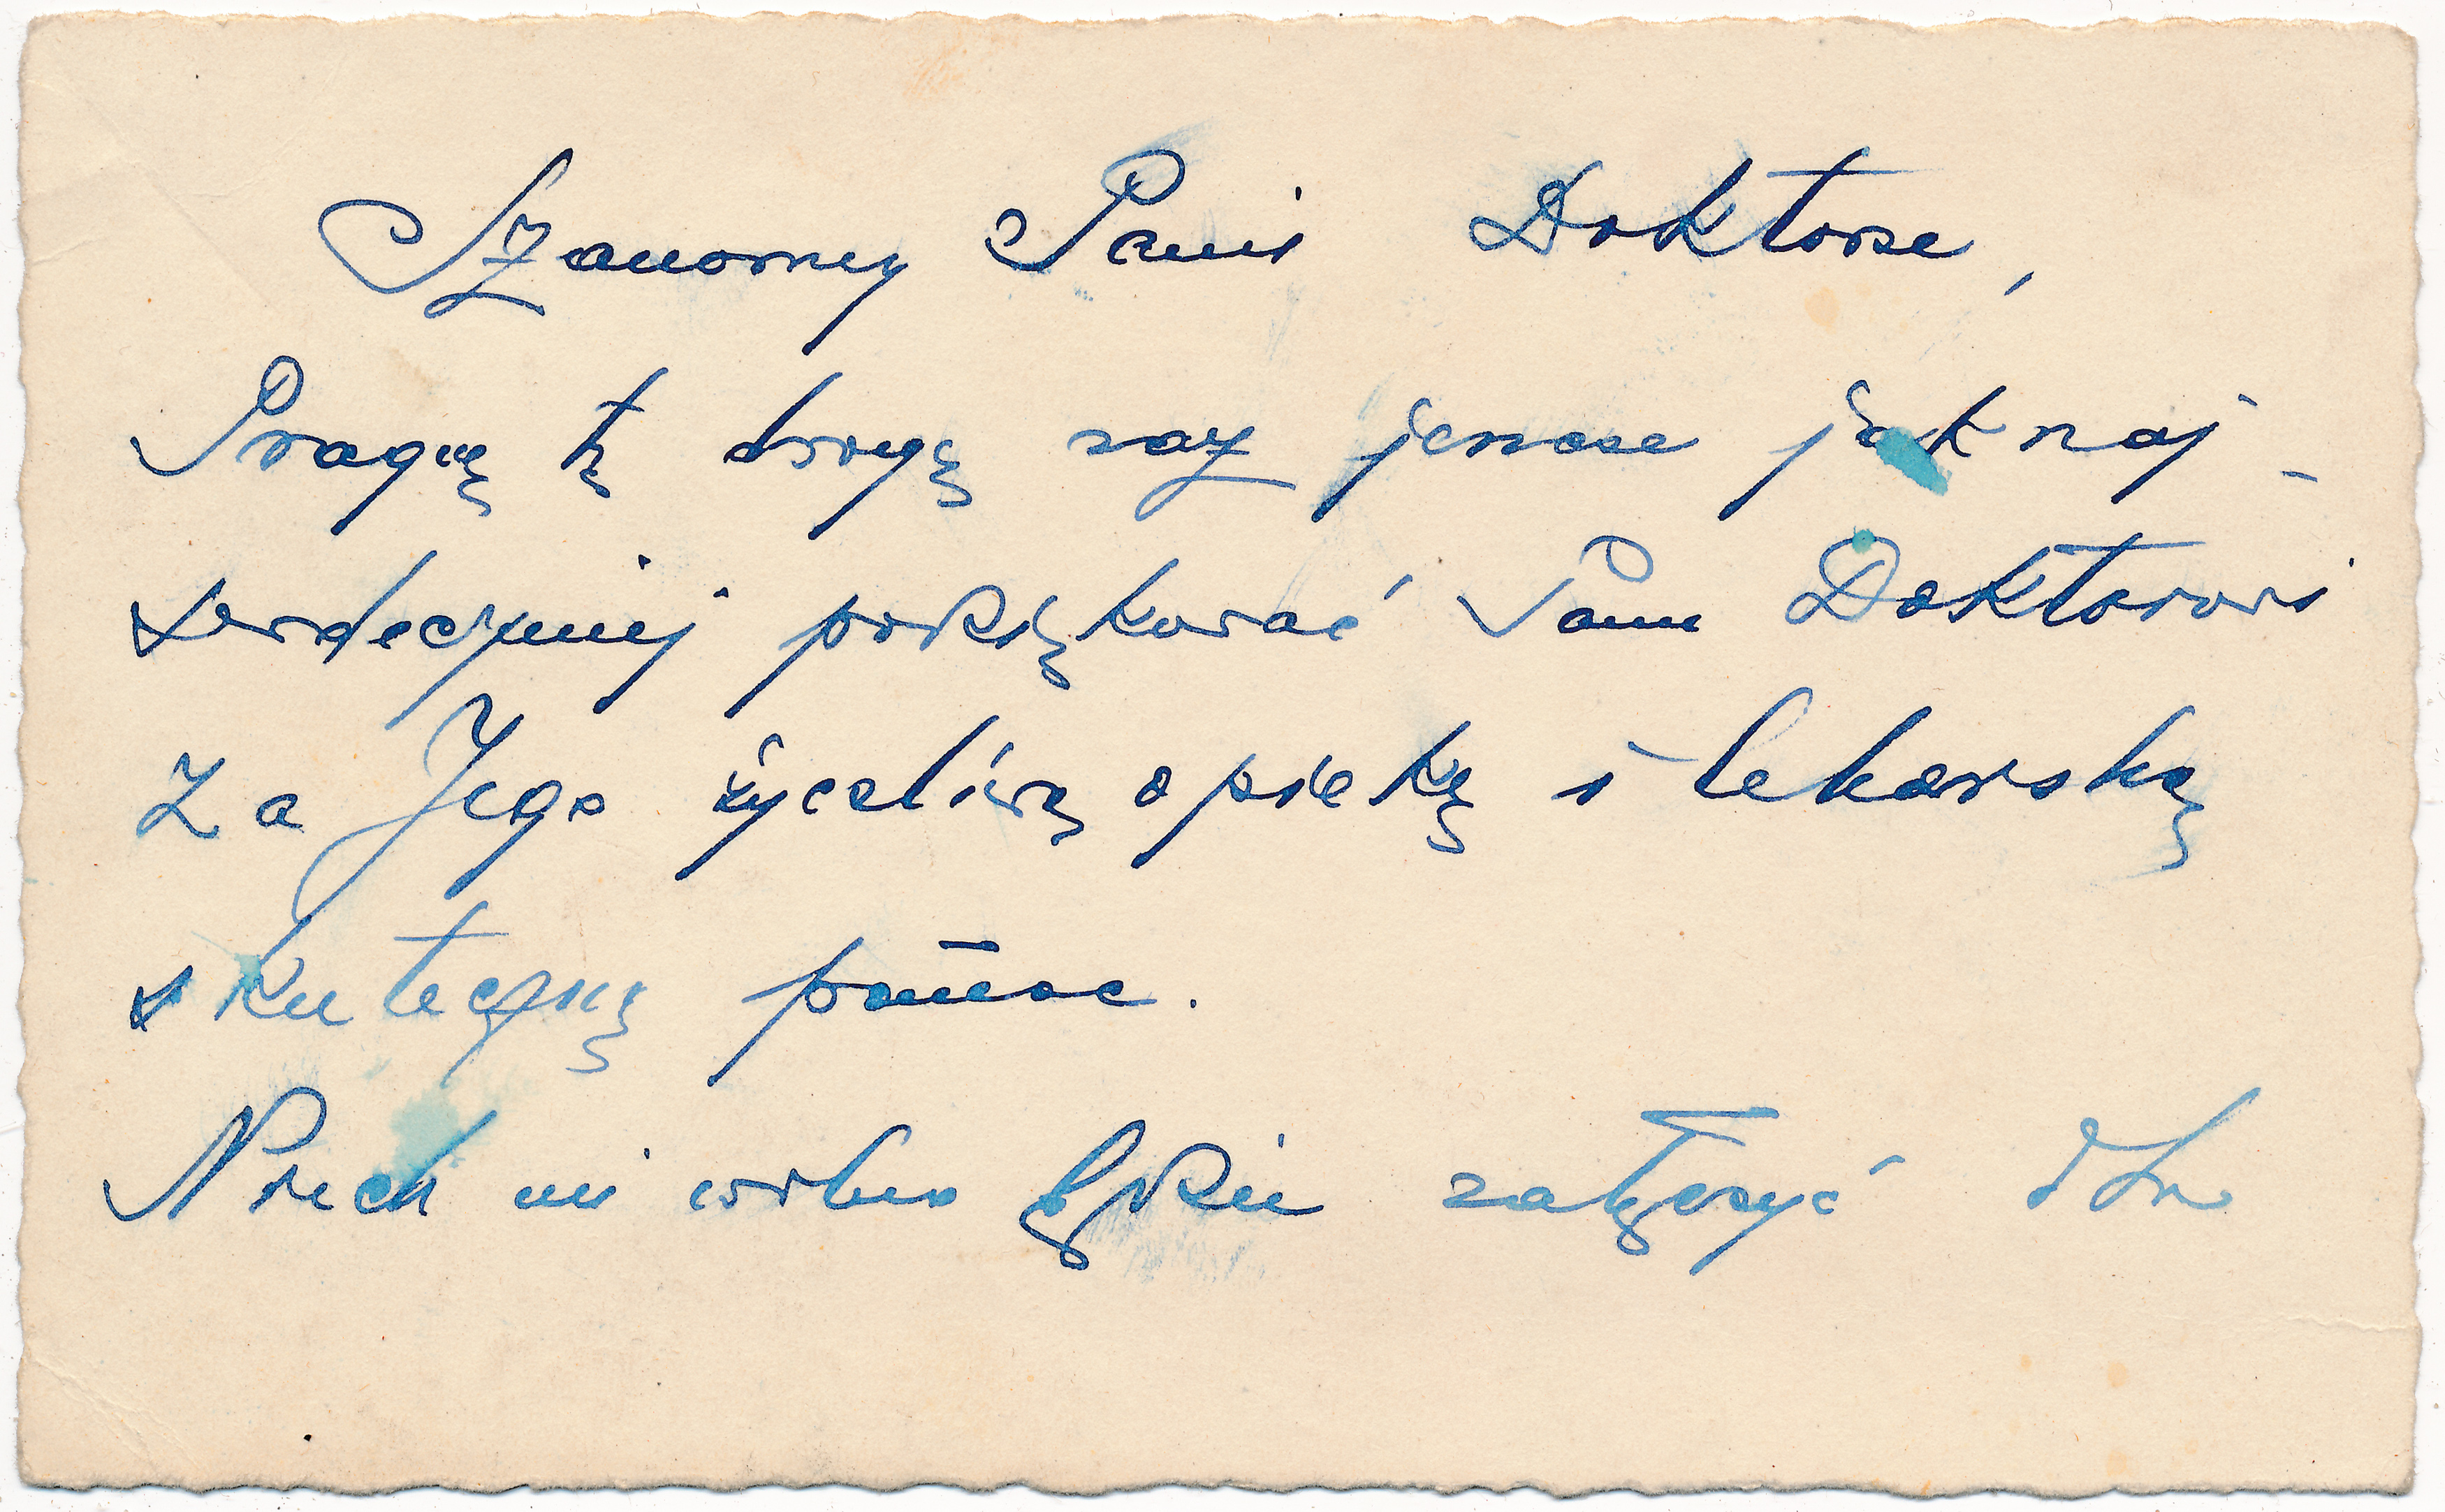 Szanowny Panie Doktorze,
Pragnę tą drogą raz jeszcze jaknaj-
serdeczniej podziękować Panu Doktorowi
za Jego życzliwą opiekę i lekarską
skuteczną pomoc.
Niech mi wolno będzie załączyć dla